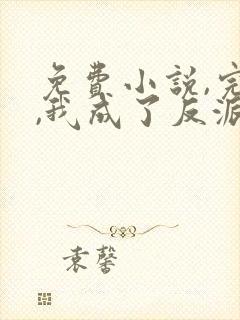 免費小說,完
,我成了反派
袁馨